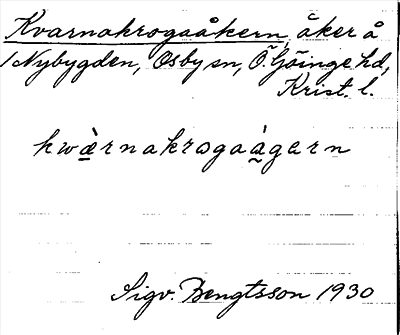 Kvarnakrogaåkern, åker å
/Nybygden, Osby sn, Ö. Göinge hd,
Krist. l.
hwæ̀rnakrɔgaàgærn
Sigv. Bengtsson 1930